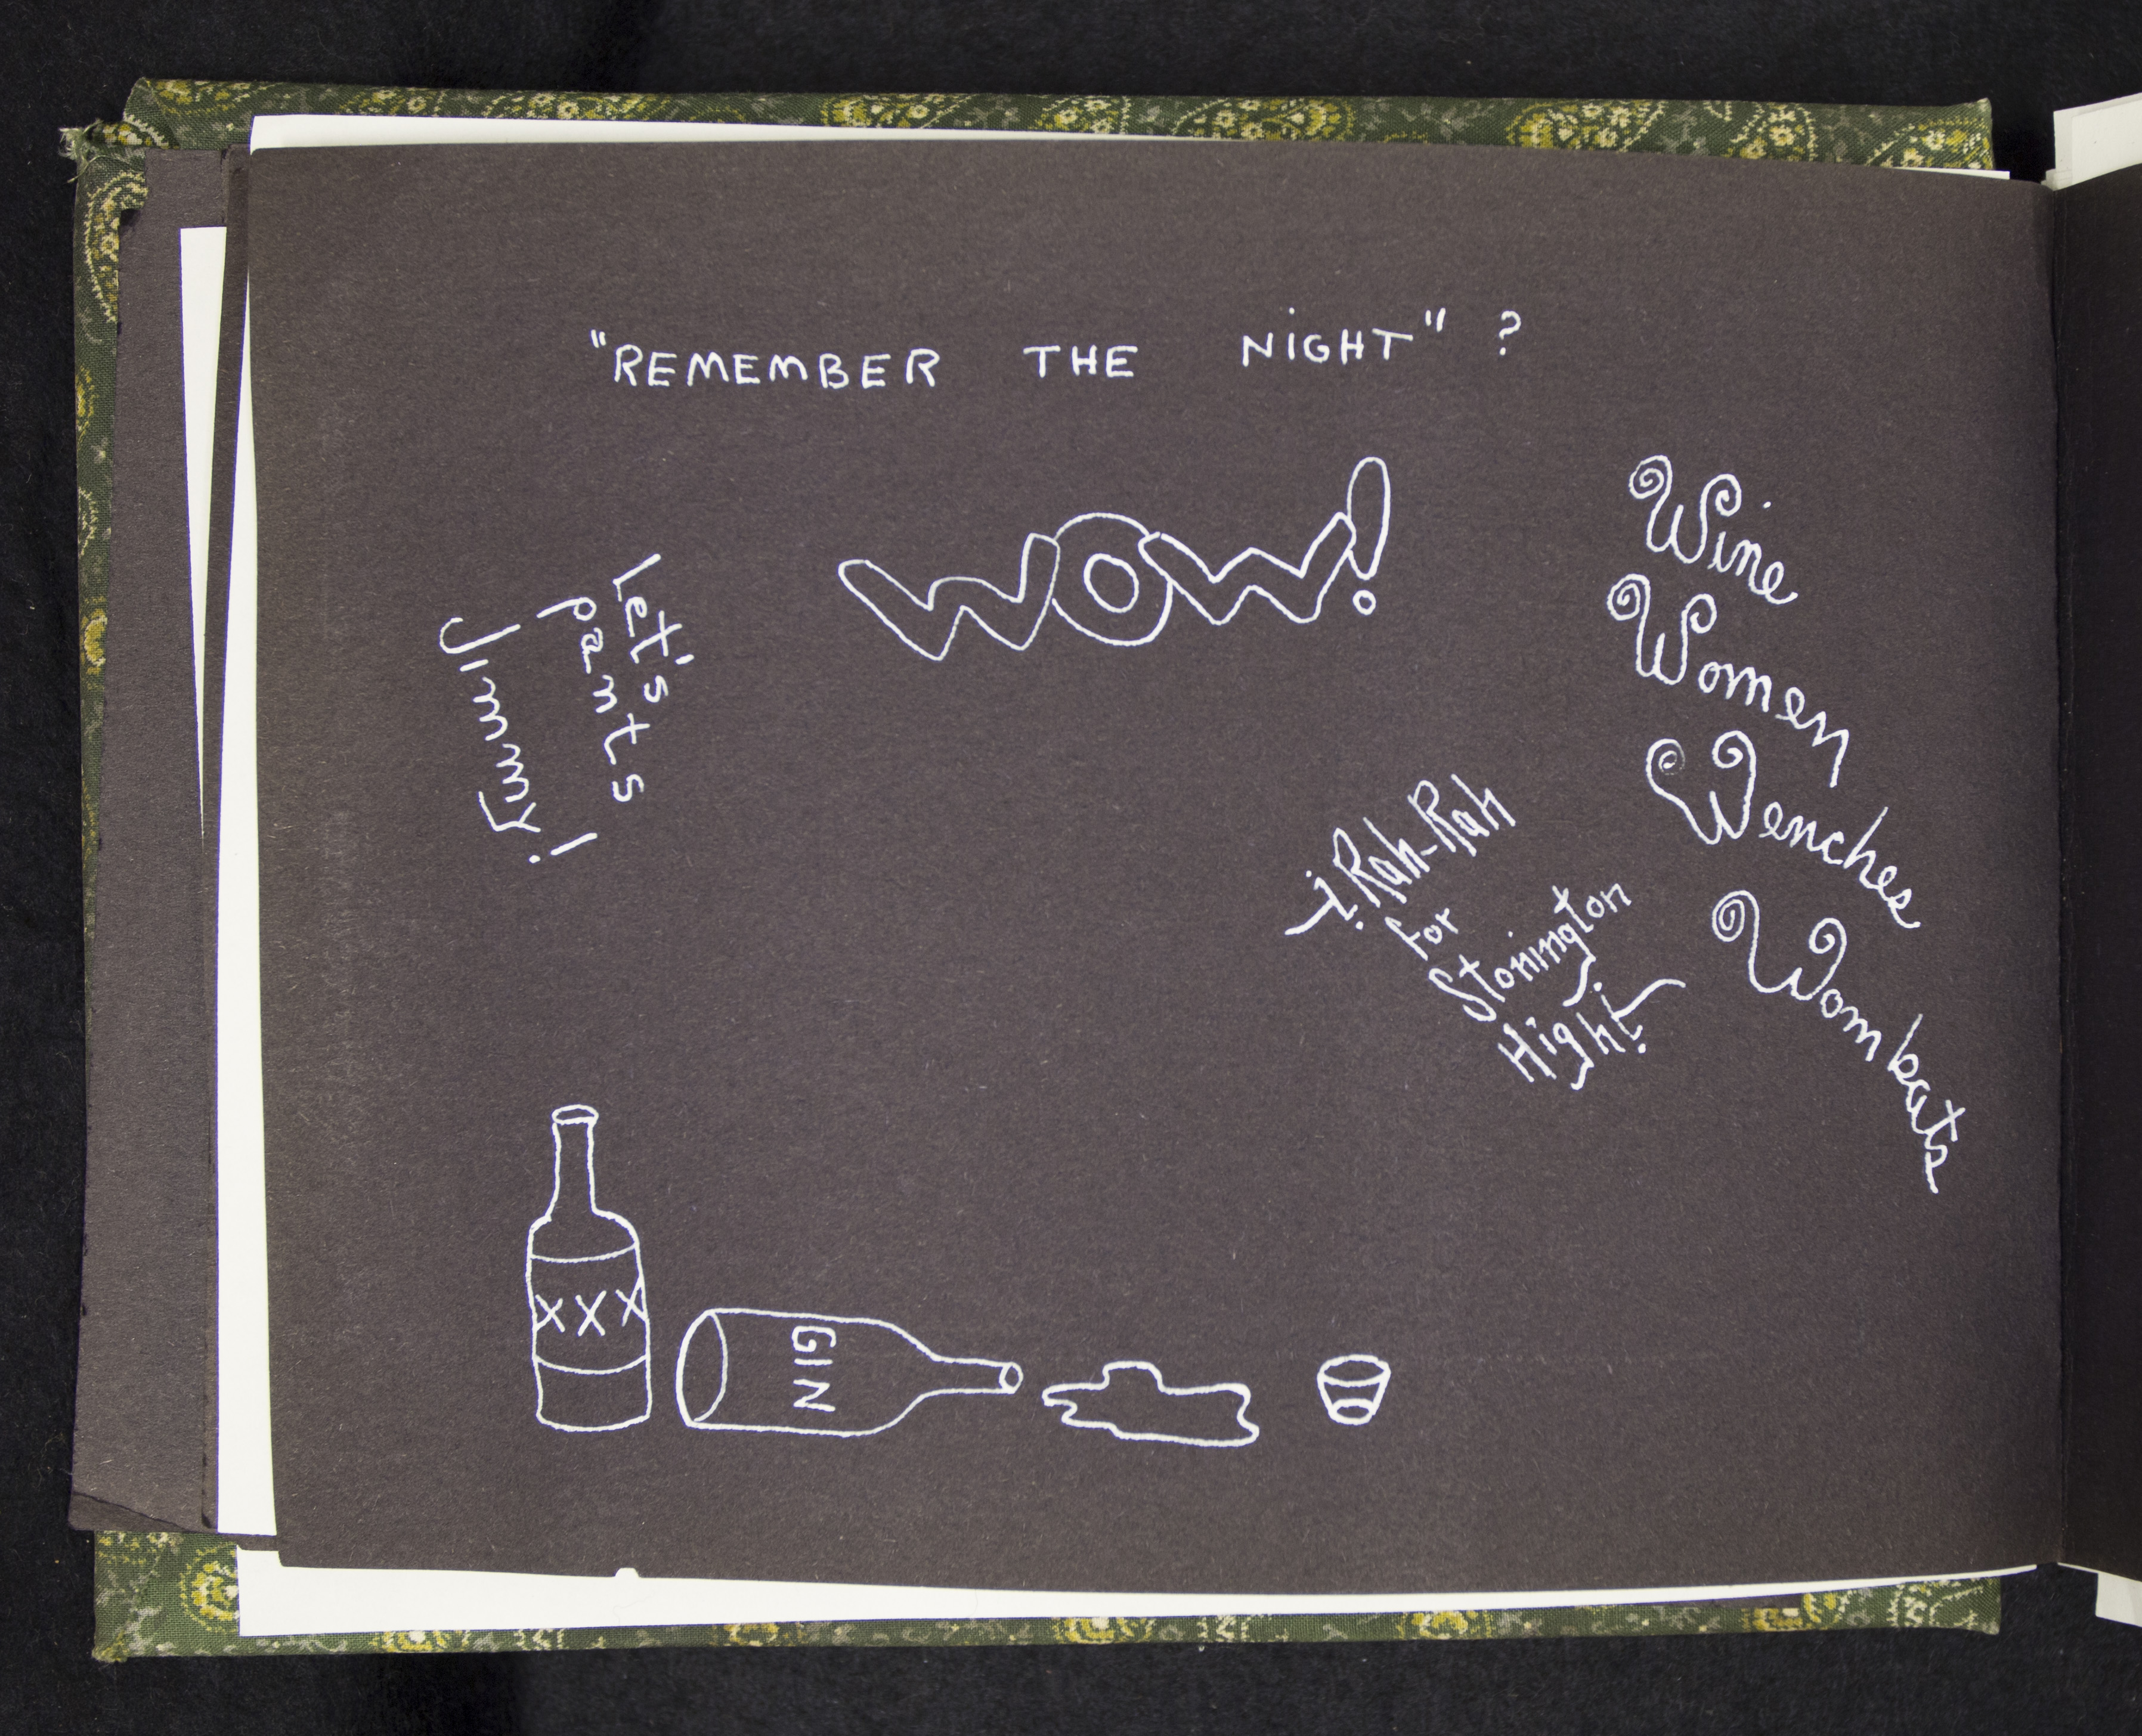 "REMEMBER THE NiGHT" ?
WOW!
Let's
pants
Jimmy!
Wine
Women
Wenches
Wombats
Rah-Rah
for
Stonington
High!
XXX
GIN